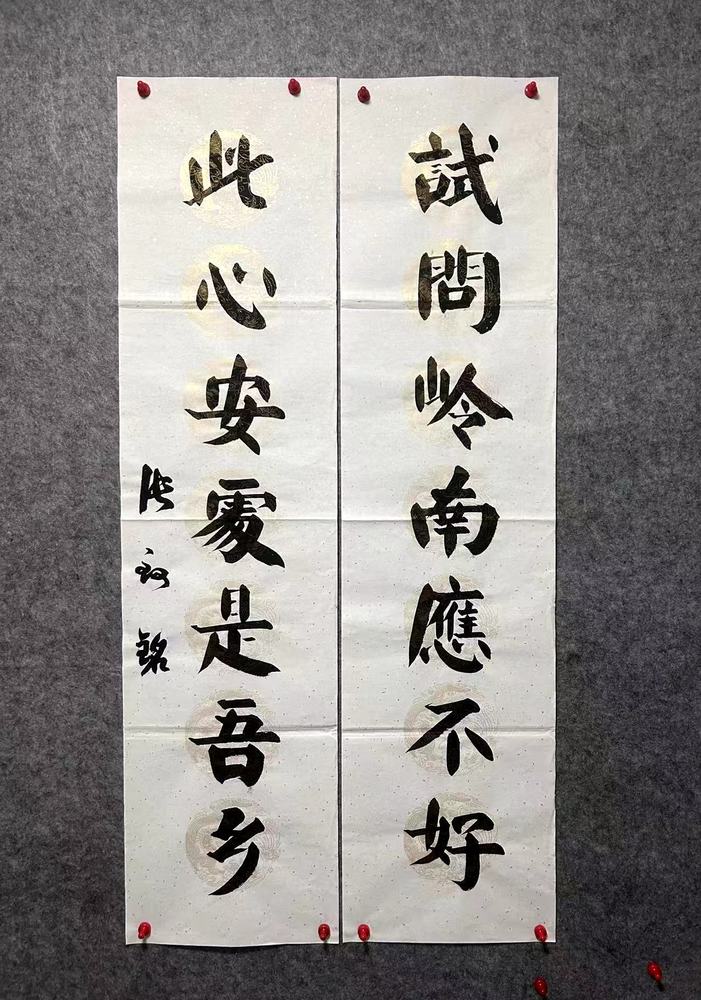 試問岭南應不好
此心安處是吾乡